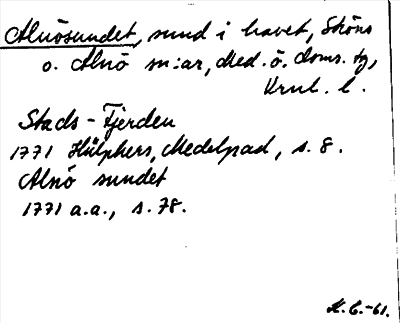 Alnösundet, sund i havet, Sköns
o. Alnö sn:ar, Med. ö. doms. tg,
Vrnl. l.
Stads-Fjerden
1771 Hülphers, Medelpad, s. 8.
Alnö sundet
1771 a.a., s. 78.
K. C. -61.